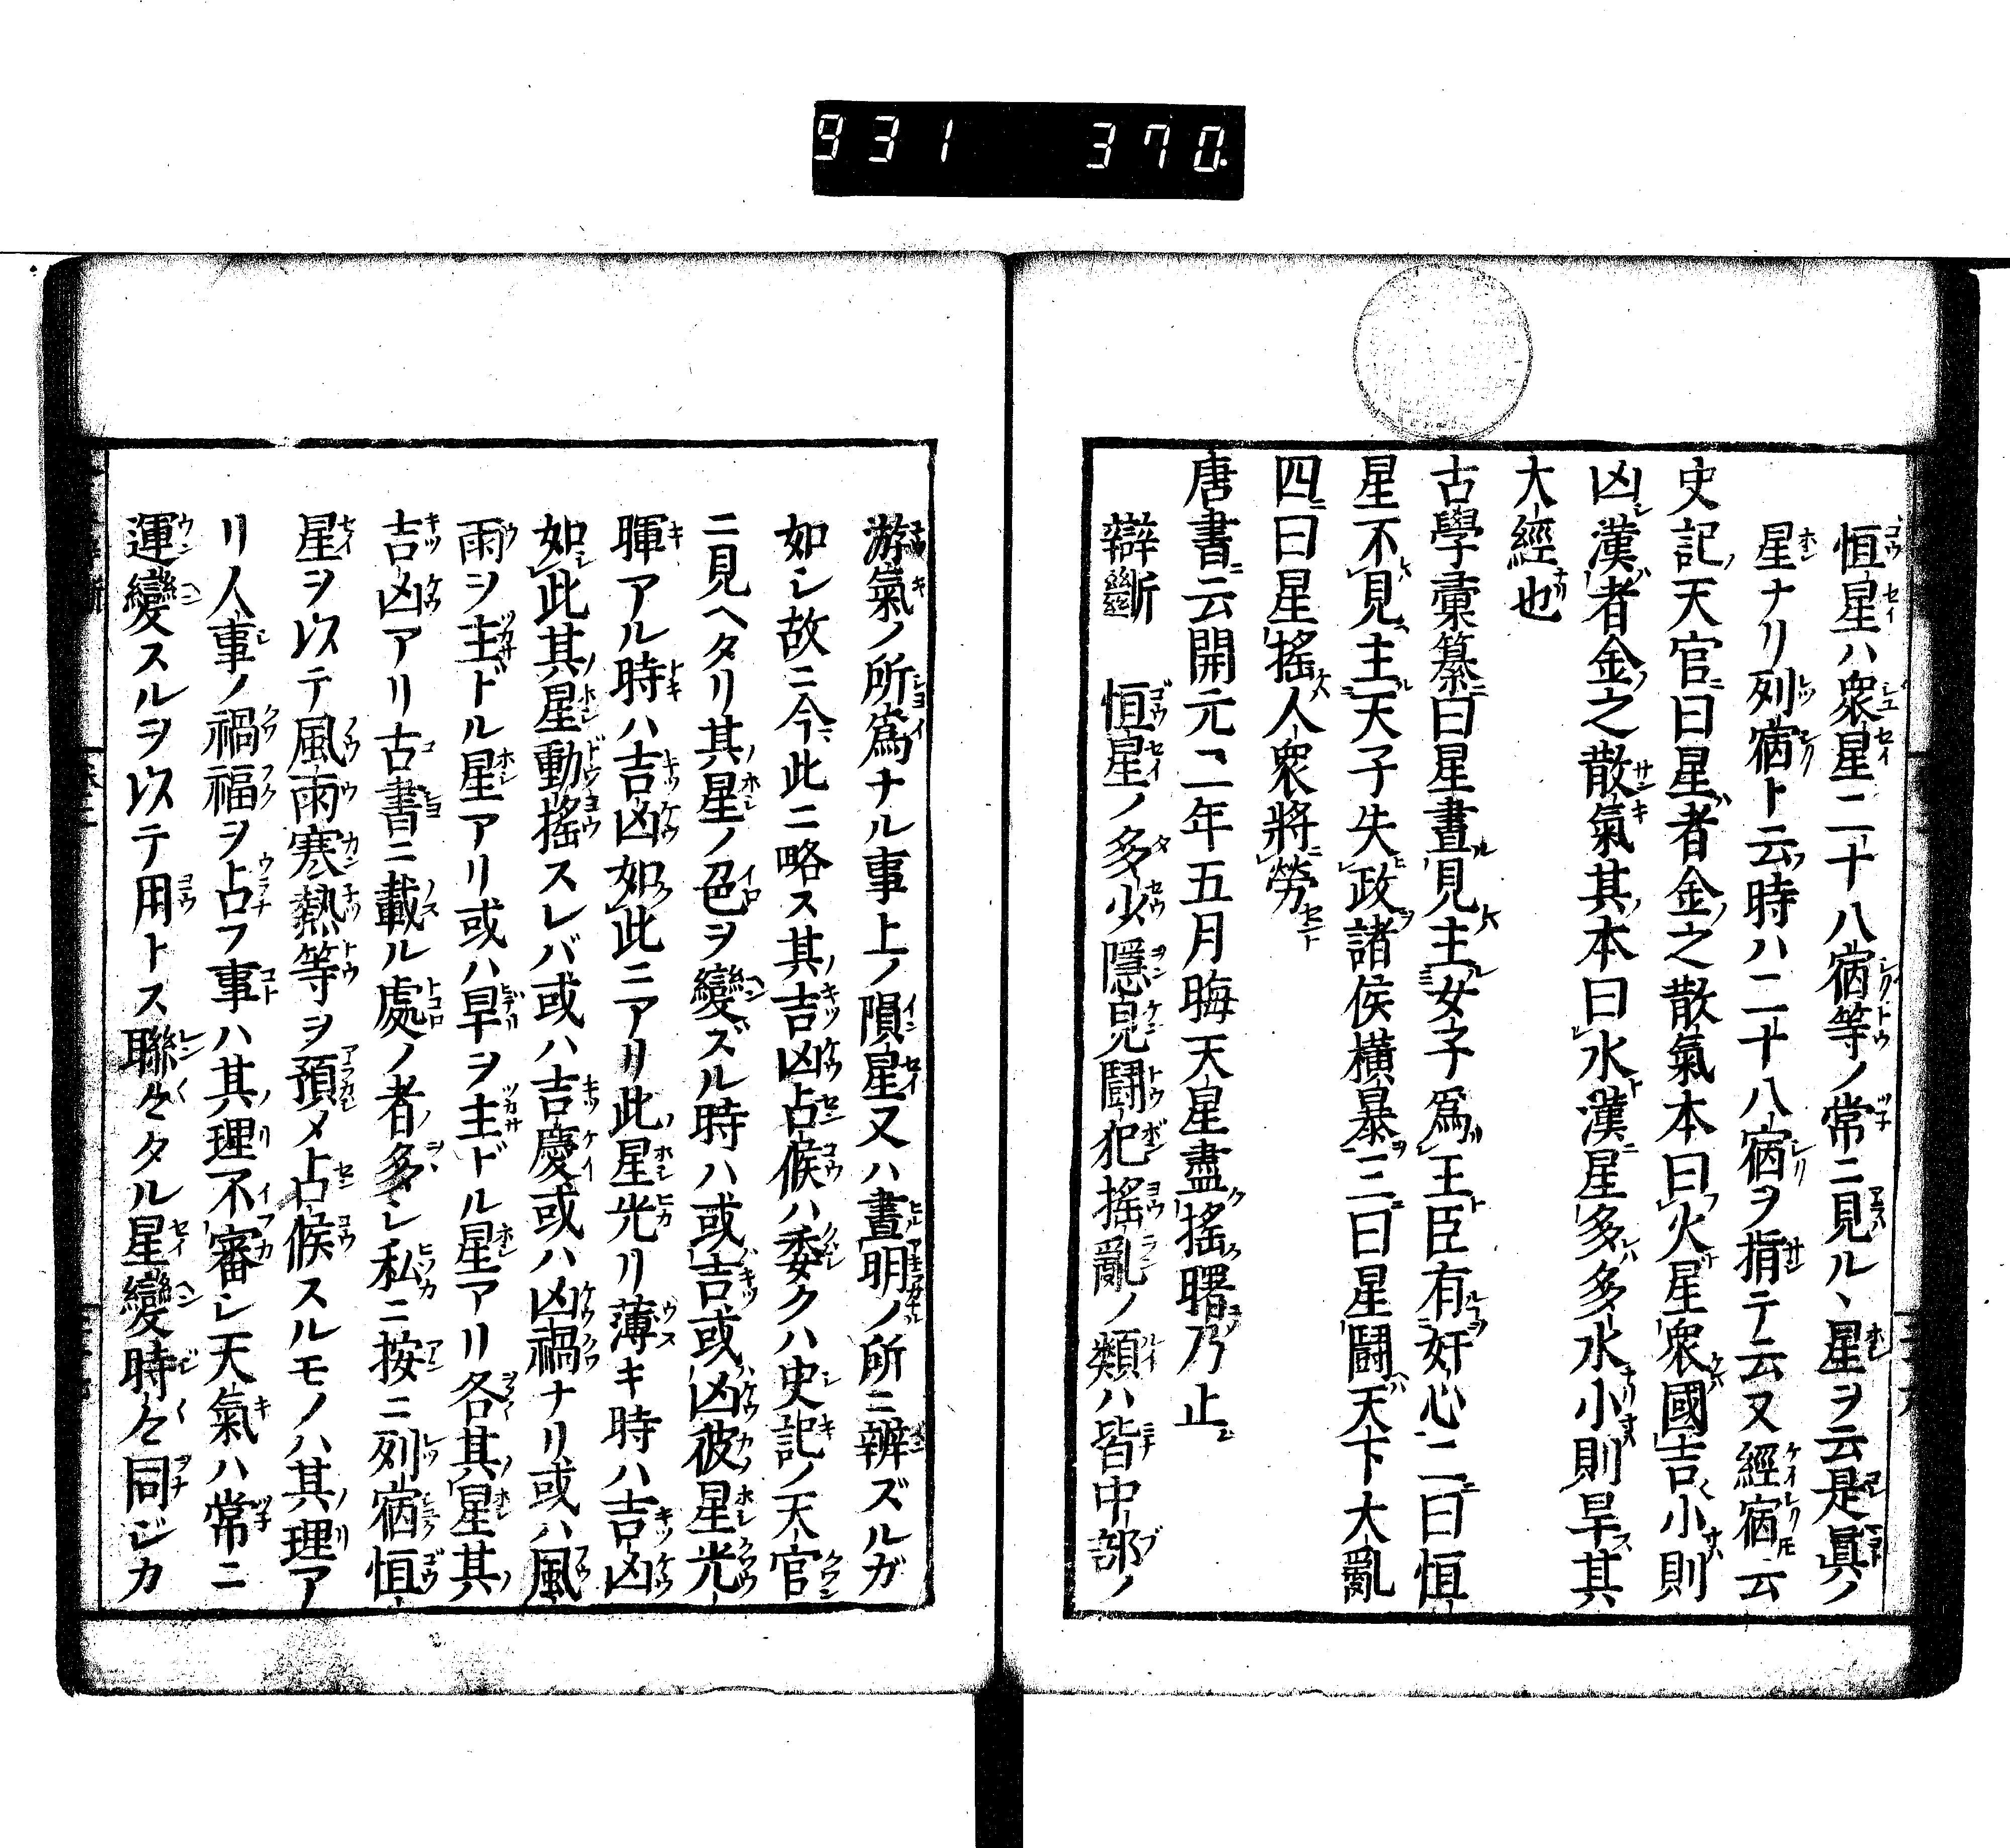 931 370.
恒星ハ衆星二十八宿等ノ常ニ見ル丶星ヲ云是眞ノ
星ナリ列宿ト云時ハ二十八宿ヲ指テ云又經宿𪜈云
史記天官曰星者金之散氣本曰火星衆國吉小則
凶漢者金之散氣其本曰水漢星多多水小則旱其
大經也
古學彙纂曰星晝見主女子爲王臣有奸心二曰恒
星不見主天子失政諸侯横暴三曰星鬪天下大亂
四曰星搖人衆將勞
唐書云開元二年五月晦天星盡搖曙乃止
辯斷 恒星ノ多少隱見鬪犯搖亂ノ類ハ皆中部ノ
游氣ノ所爲ナル事上ノ隕星又ハ晝明ノ所ニ辨ズルガ
如シ故ニ今此ニ略ス其吉凶占候ハ委クハ史記ノ天官
ニ見ヘタリ其星ノ色ヲ變ズル時ハ或吉或凶彼星光
暉アル時ハ吉凶如此ニアリ此星光リ薄キ時ハ吉凶
如此其星動搖スレバ或ハ吉慶或ハ凶禍ナリ或ハ風
雨ヲ主ドル星アリ或ハ旱ヲ主ドル星アリ各其星其
吉凶アリ古書ニ載ル處ノ者多シ私ニ按ニ列宿恒
星ヲ以テ風雨寒熱等ヲ預メ占候スルモノハ其理ア
リ人事ノ禍福ヲ占フ事ハ其理不審シ天氣ハ常ニ
運變スルヲ以テ用トス聯々タル星變時々同ジカ